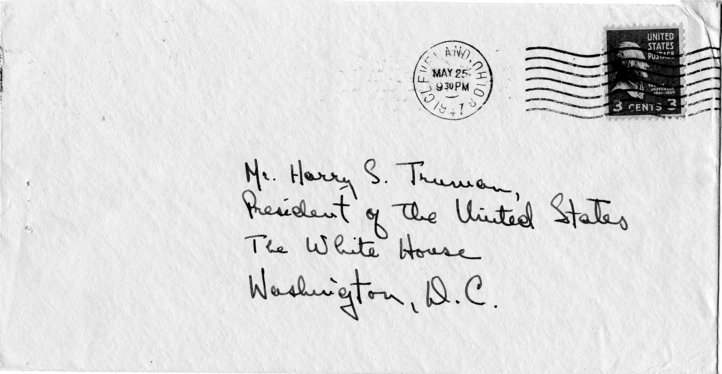 CLEVELAND, OHIO
MAY 25
9 30 PM
UNITED
STATES
POSTAGE
3 CENTS 3
Mr. Harry S. Truman,
President of the United States
The White House
Washington, D.C.